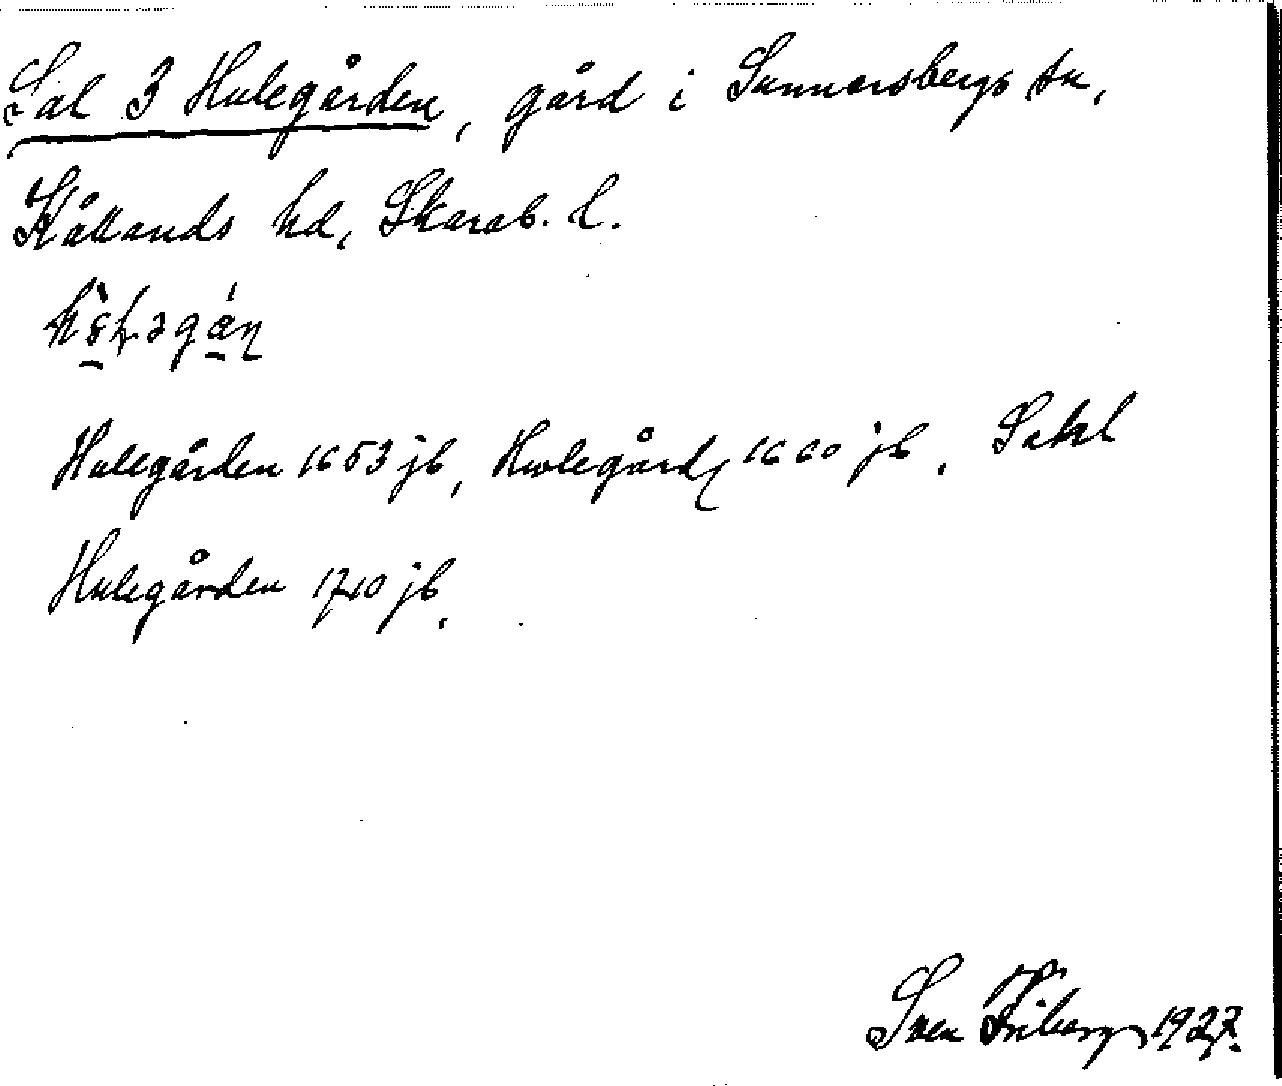 Sal 3 Hulegården, gård i Sunnersbergs sn,
Kållands hd, Skarab. l.
Hulegården 1653 jb, Hwlegård 1660 jb. Sahl
Hulegården 1710 jb.
Sven Friberg 1927.